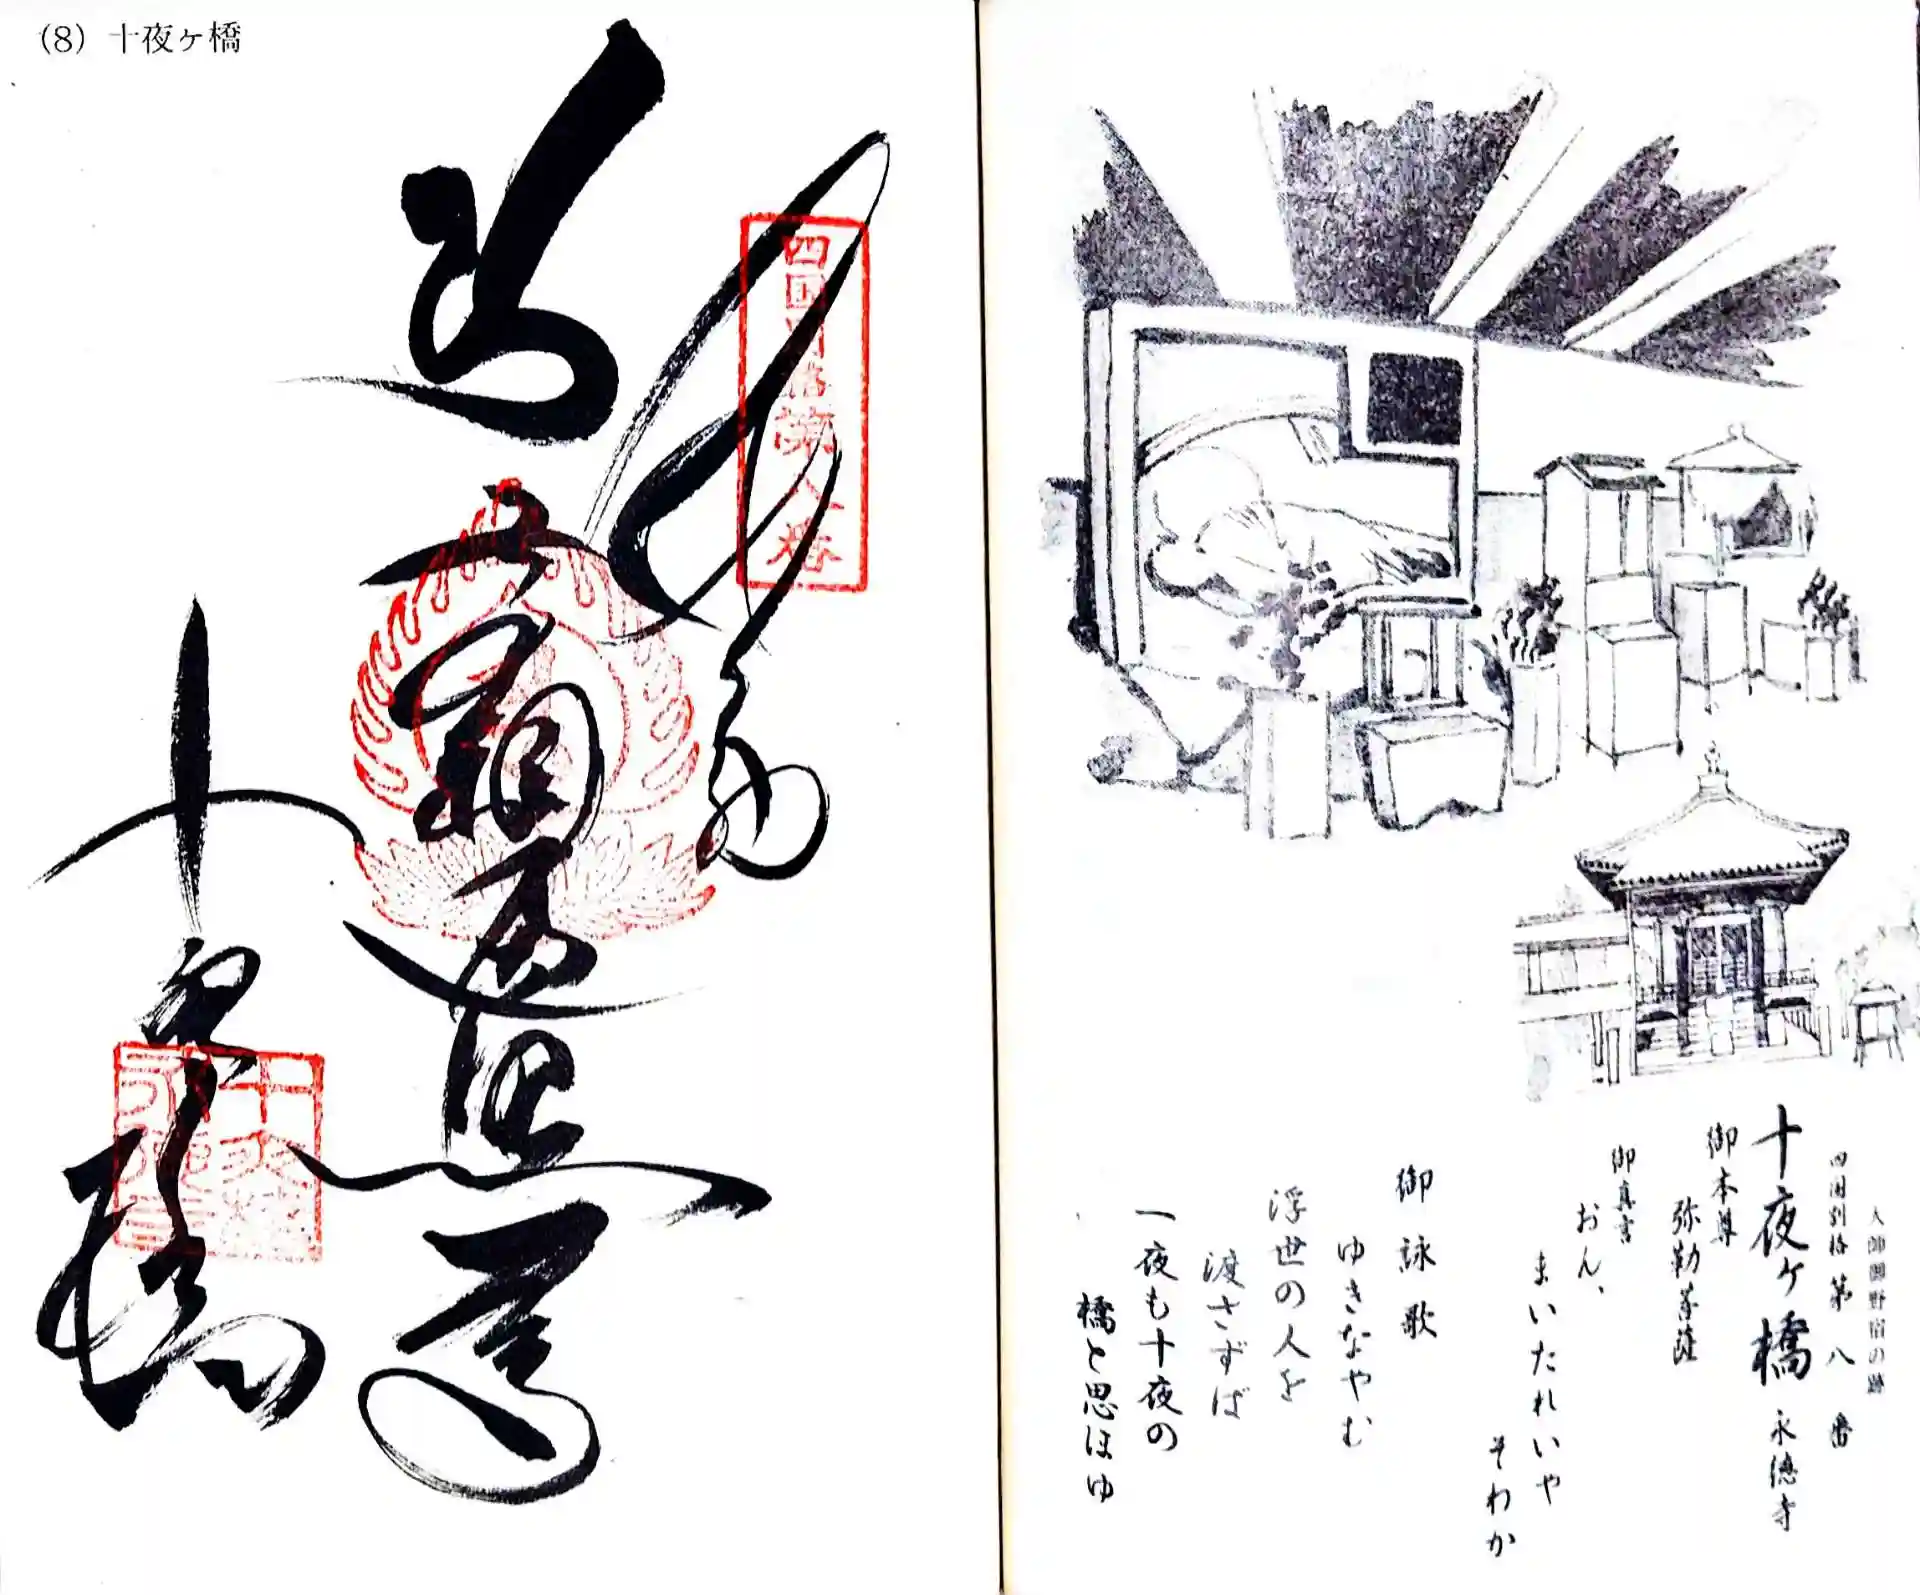 (8) 十夜ヶ橋
奉納
四国別格第八番
弥勒菩薩
十夜橋
大師御野宿の跡
四国別格 第八番
十夜ヶ橋 永徳寺
御本尊
弥勒菩薩
御真言
おん、
まいたれいや
そわか
御詠歌
ゆきなやむ
浮世の人を
渡さずば
一夜も十夜の
橋と思ほゆ